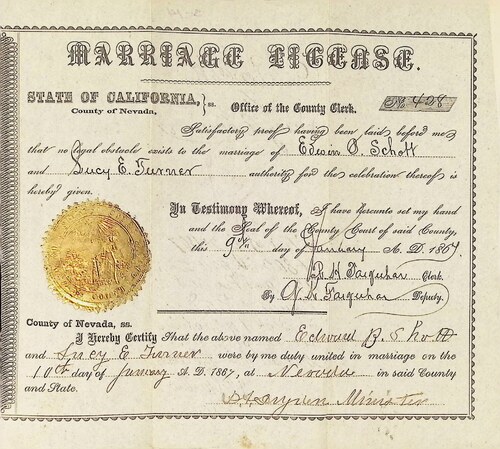 MARRIAGE LICENSE.
STATE OF CALIFORNIA, } ss.
County of Nevada,
Office of the County Clerk.
No 428
Satisfactory proof having been laid before me
that no legal obstacle exists to the marriage of Edwin O. Schott
and Lucy E. Turner authority for the celebration thereof is
hereby given.
In Testimony Whereof, I have hereunto set my hand
and the Seal of the County Court of said County,
this 9th day of January A. D. 1867.
Farquhar Clerk.
By Farquhar Deputy.
County of Nevada, ss.
I Hereby Certify That the above named Edward B. Shott
and Lucy E Turner were by me duly united in marriage on the
10th day of January A. D. 1867, at Nevada in said County
and State.
Minister